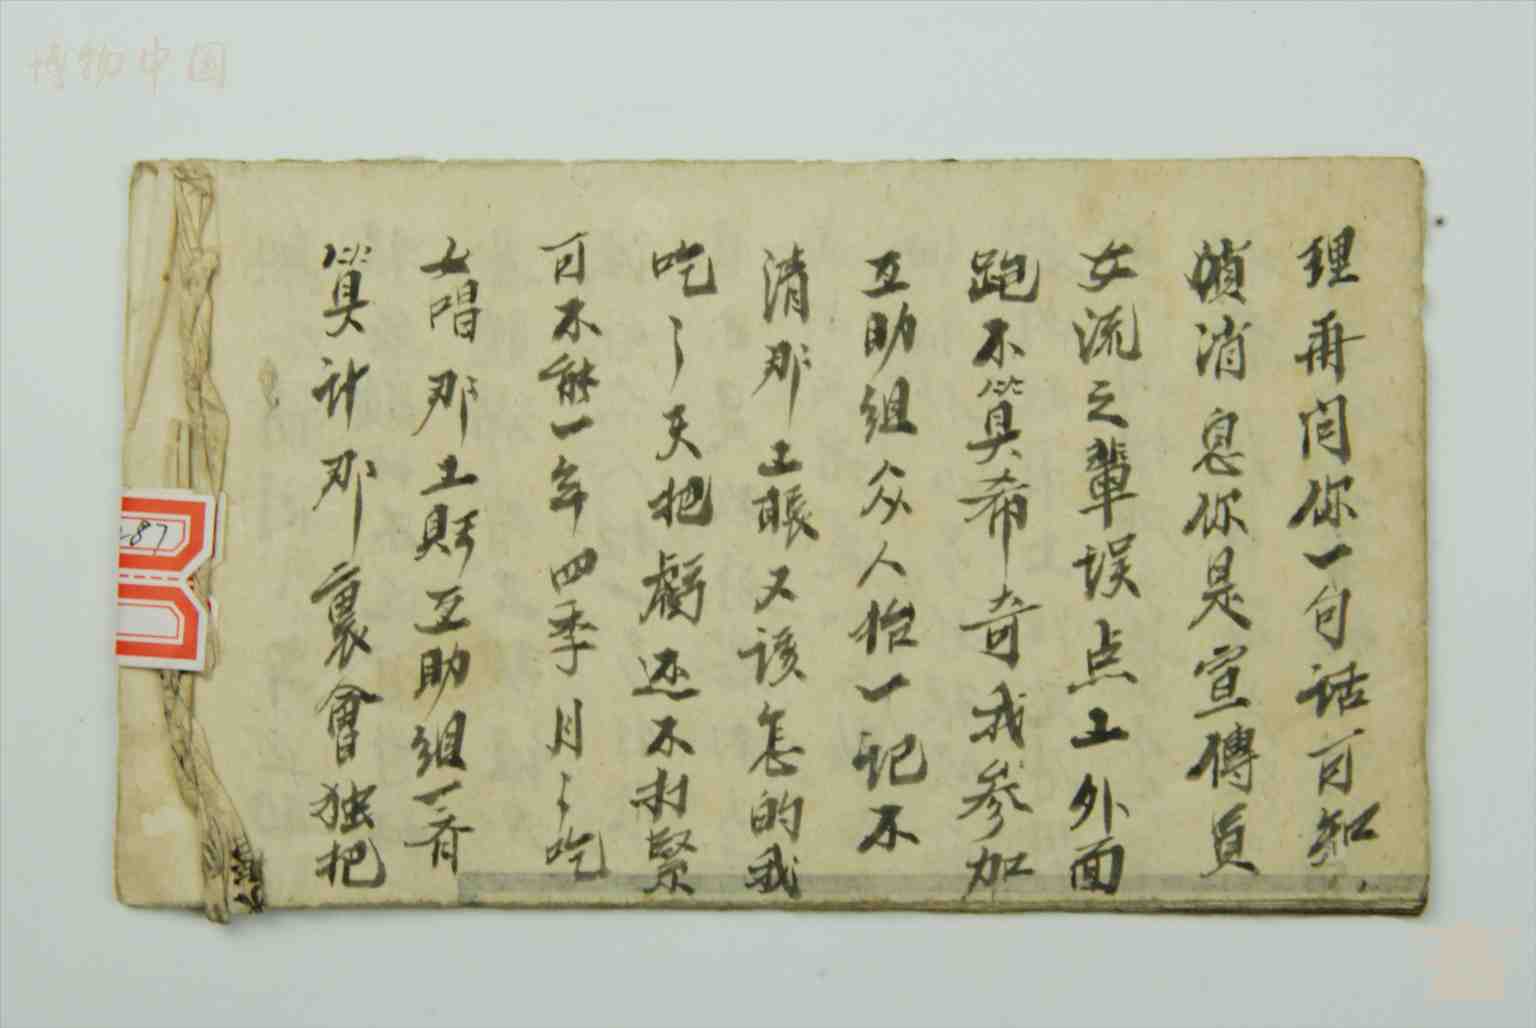 理再问你一句话可知
消息你是宣傳員
女流之輩误点工外面
跑不算希奇我参加
互助组众人抬一记不
清那工賬又该怎的我
吃了天把虧还不打緊
可不能一年四季月々吃
女唱那工財互助组一齐
算计那裏會独把
博物中国